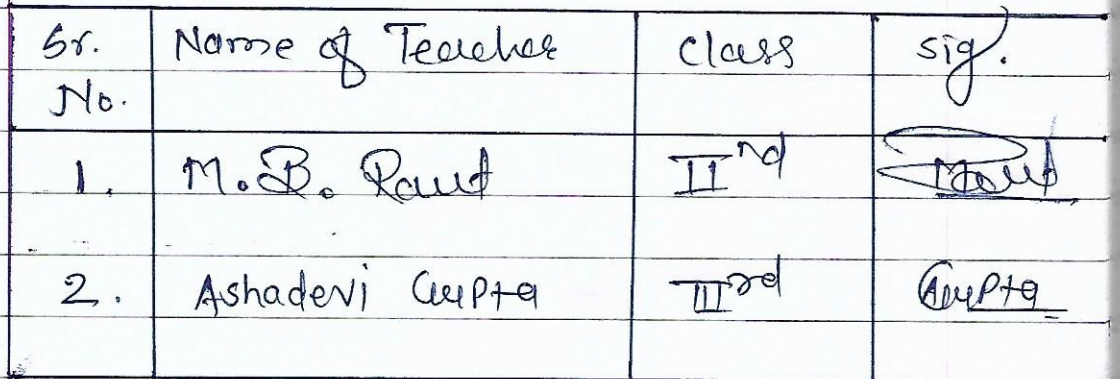 Sr. No. Name of Teacher Class Sig.
1. M. B. Raut IInd Raut
2. Ashadevi Gupta IIIrd Gupta